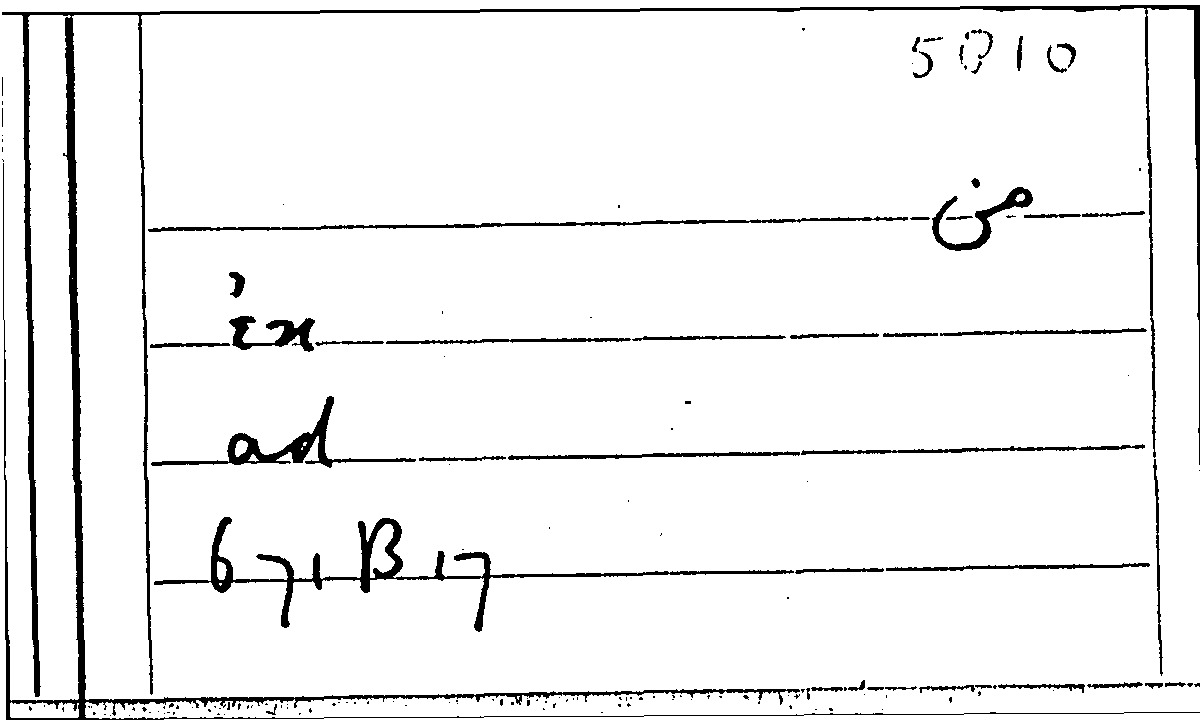 من
ἐκ
ad
671 B 17